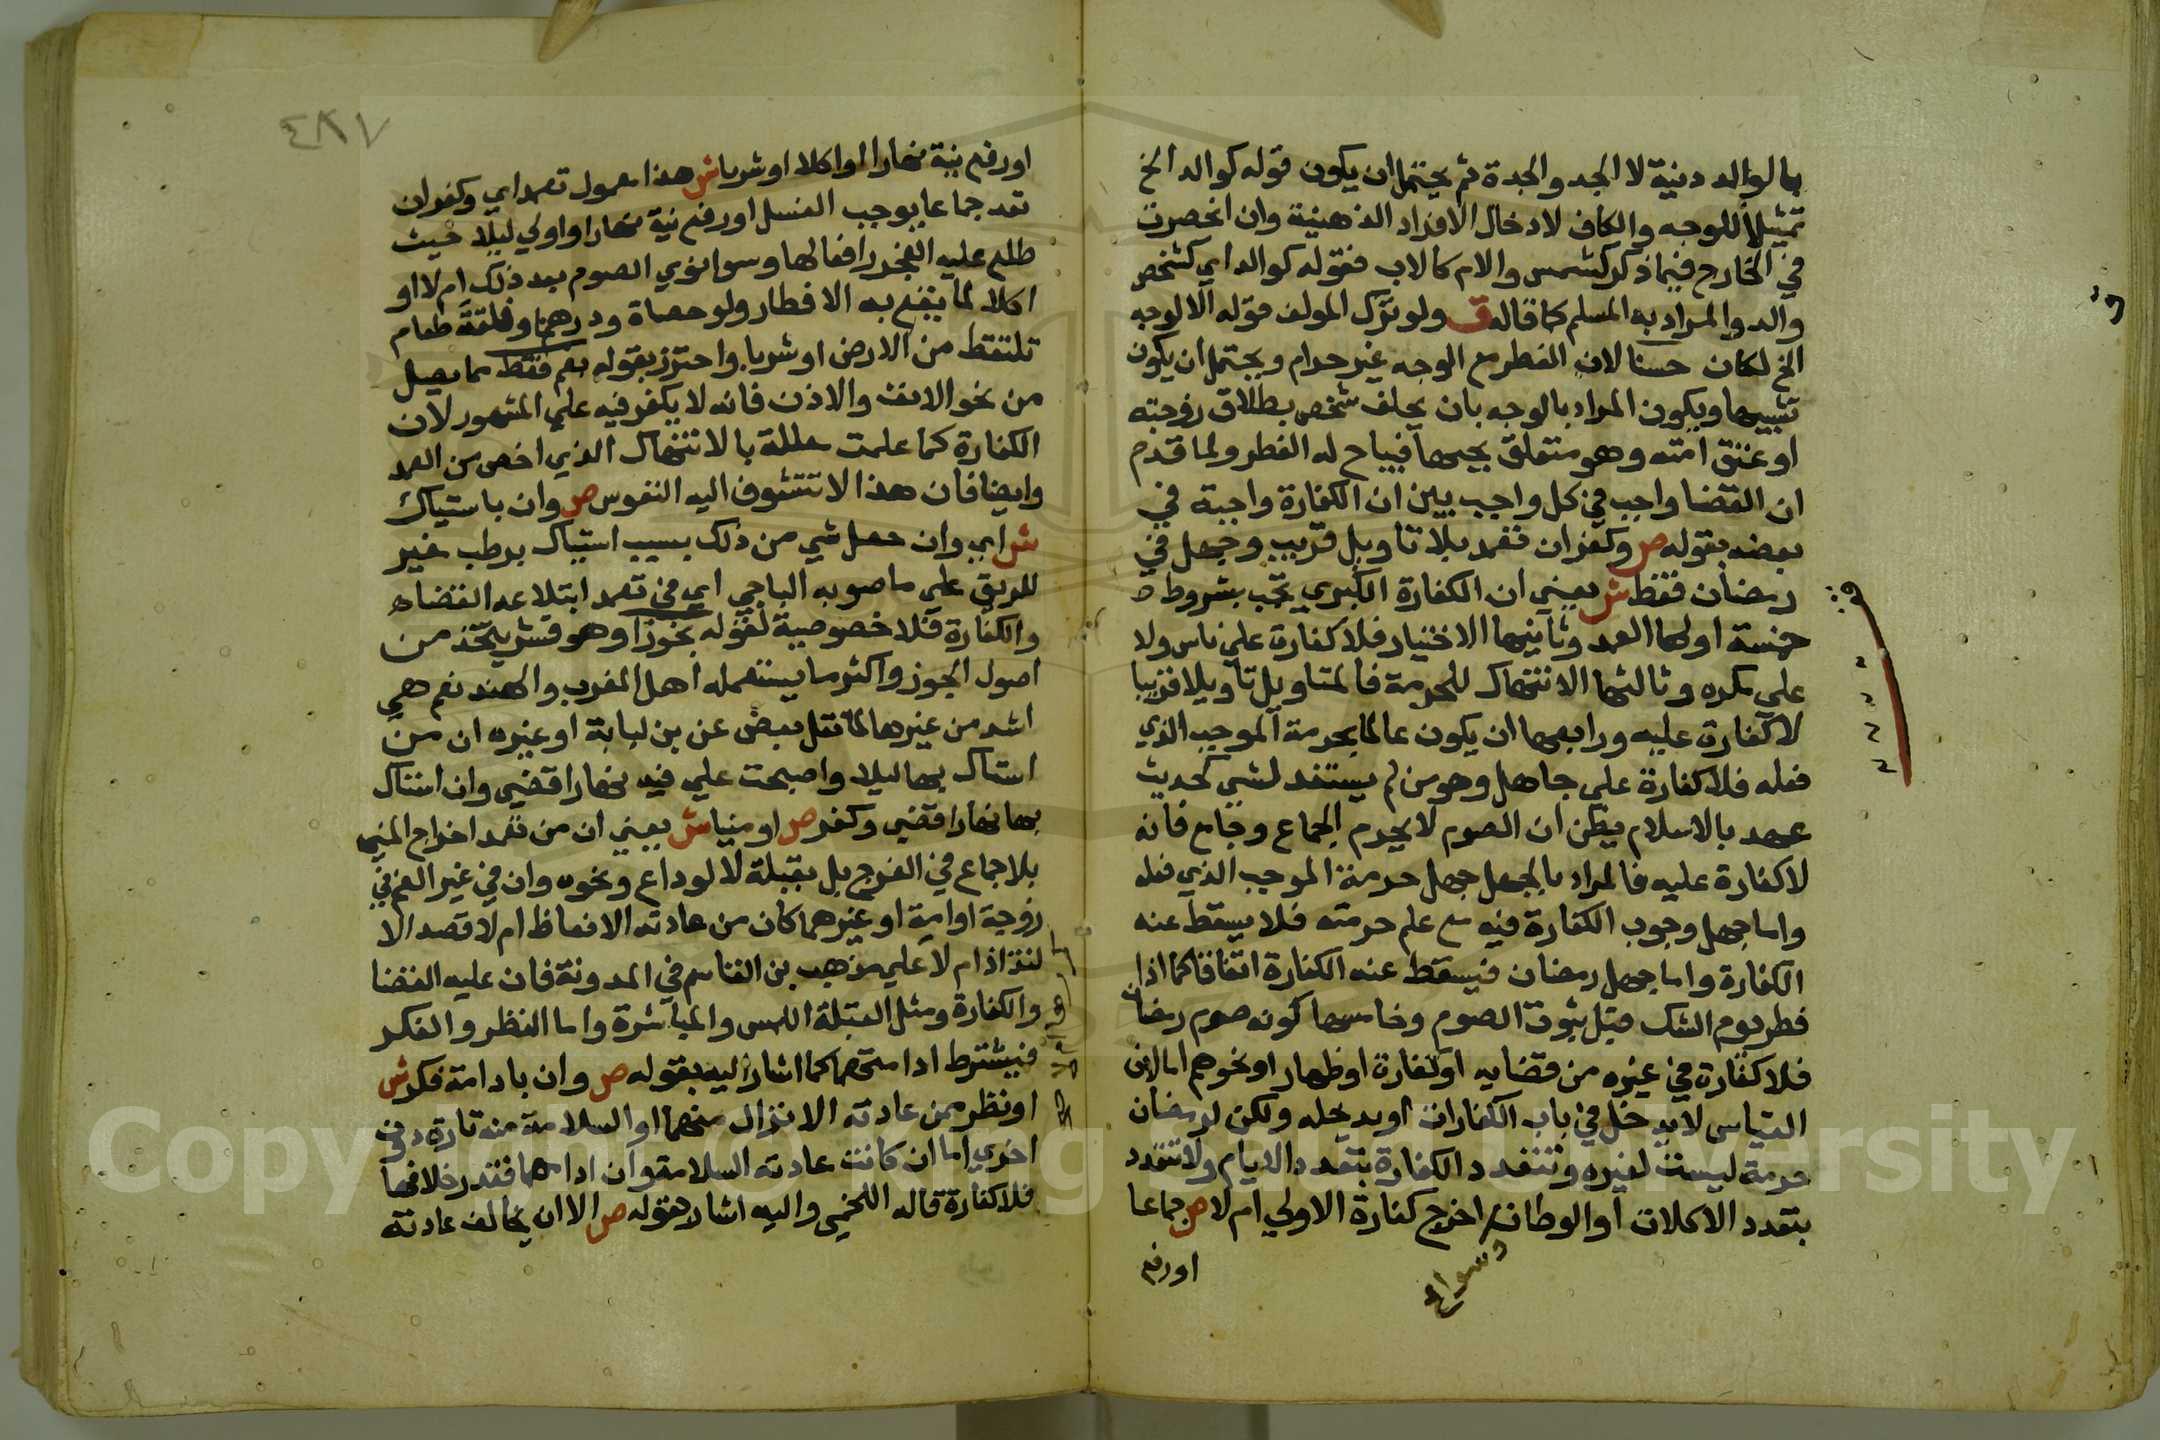 بالوالد دنية لا الجد والجدة ثم يحتمل ان يكون قوله كوالد الخ
تمثيلا للوجه والكاف لادخال الافراد الذهنية وان انحصرت
في الخارج فيما ذكر كشمس والام كالاب فقوله كوالد اي كشخص
والد والمراد به المسلم كما قاله ق ولو ترك المولف قوله الا لوجه
الخ لكان حسنا لان الفطر مع الوجه غير حرام ويحتمل ان يكون
تشبيها ويكون المراد بالوجه بان يحلف شخص بطلاق زوجته
او عتق امته وهو متعلق بجبها فيباح له الفطر ولما قدم
ان القضا واجب في كل واجب بين ان الكفارة واجبة في
بعضه بقوله ص وكفر ان تعمد بلا تاويل قريب وجهل في
رمضان فقط ش يعني ان الكفارة الكبري تجب بشروط
خمسة اولها العمد وثانيها الاختيار فلا كفارة علي ناس ولا
علي مكره وثالثها الانتهاك للحرمة فالمتاويل تاويلا قريبا
لا كفارة عليه ورابعها ان يكون عالما بحرمة الموجب الذي
فعله فلا كفارة علي جاهل وهو من لم يستند لشي كحديث
عهد بالاسلام يظن ان الصوم لا يحرم الجماع وجامع فانه
لا كفارة عليه فالمراد بالجهل جهل حرمة الموجب الذي فعله
واما جهل وجوب الكفارة فيه مع علم حرمته فلا يسقط عنه
الكفارة واما جهل رمضان فيسقط عنه الكفارة اتفاقا كما اذا
فطر يوم الشك قبل ثبوت الصوم وخامسها كونه صوم رمضان
فلا كفارة في غيره من قضايه او كفارة او ظهار او نحوهم اما لان
القياس لا يدخل في باب الكفارات او يدخله ولكن لرمضان
حرمة ليست لغيره وتتعدد الكفارة بتعدد الايام ولا تتعدد
بتعدد الاكلات او الوطات اخرج كفارة الاولي ام لا ص جماعا
سوا
او رفع
٤٨٧
او رفع نية نهارا او اكلا او شربا ش هذا معمول تعمد اي وكفر ان
تعمد جماعا يوجب الغسل او رفع نية نهارا او اولي ليلا حيث
طلع عليه الفجر رافعا لها وسوا نوي الصوم بعد ذلك ام لا او
اكلا لما يقع به الافطار ولو حصاة ودرهما وفلقة طعام
تلتقط من الارض او شربا واحترز بقوله بفم فقط مما يصل
من نحو الانف والاذن فانه لا يكفر فيه علي المشهور لان
الكفارة كما علمت معللة بالانتهاك الذي اخص من العمد
وايضا فان هذا لا تتشوف اليه النفوس ص وان باستياك
ش اي وان حصل شي من ذلك بسبب استياك برطب غير
للريق علي ما صوبه الباجي اي في تعمد ابتلاعه القضاء
والكفارة فلا خصوصية لقوله بجوزا وهو قشر يتخذ من
اصول الجوز واكثر ما يستعمله اهل المغرب والهند نعم هي
اشد من غيرها لما نقل بعض عن بن لبابة او غيره ان من
استاك بها ليلا واصبحت علي فيه نهارا قضي وان استاك
بها نهارا قضي وكفر ص او منيا ش يعني ان من تعمد اخراج المني
بلا جماع في الفرج بل بقبلة لا لوداع ونحوه وان في غير الفم في
زوجة او امة او غيرهما كان من عادته الانعاظ ام لا قصد الا
لتذاذ ام لا علي مذهب بن القاسم في المدونة فان عليه القضا
والكفارة ومثل القبلة اللمس والمباشرة واما النظر والفكر
فيشترط ادامتهما كما اشار اليه بقوله ص وان بادامة فكر ش
او نظر ممن عادته الانزال منهما او السلامة منه تارة دون
اخري اما ان كانت عادته السلامة وان ادامهما فقدر خلافها
فلا كفارة قاله اللخمي واليه اشار بقوله ص الا ان يخالف عادته
Copyright © King Saud University